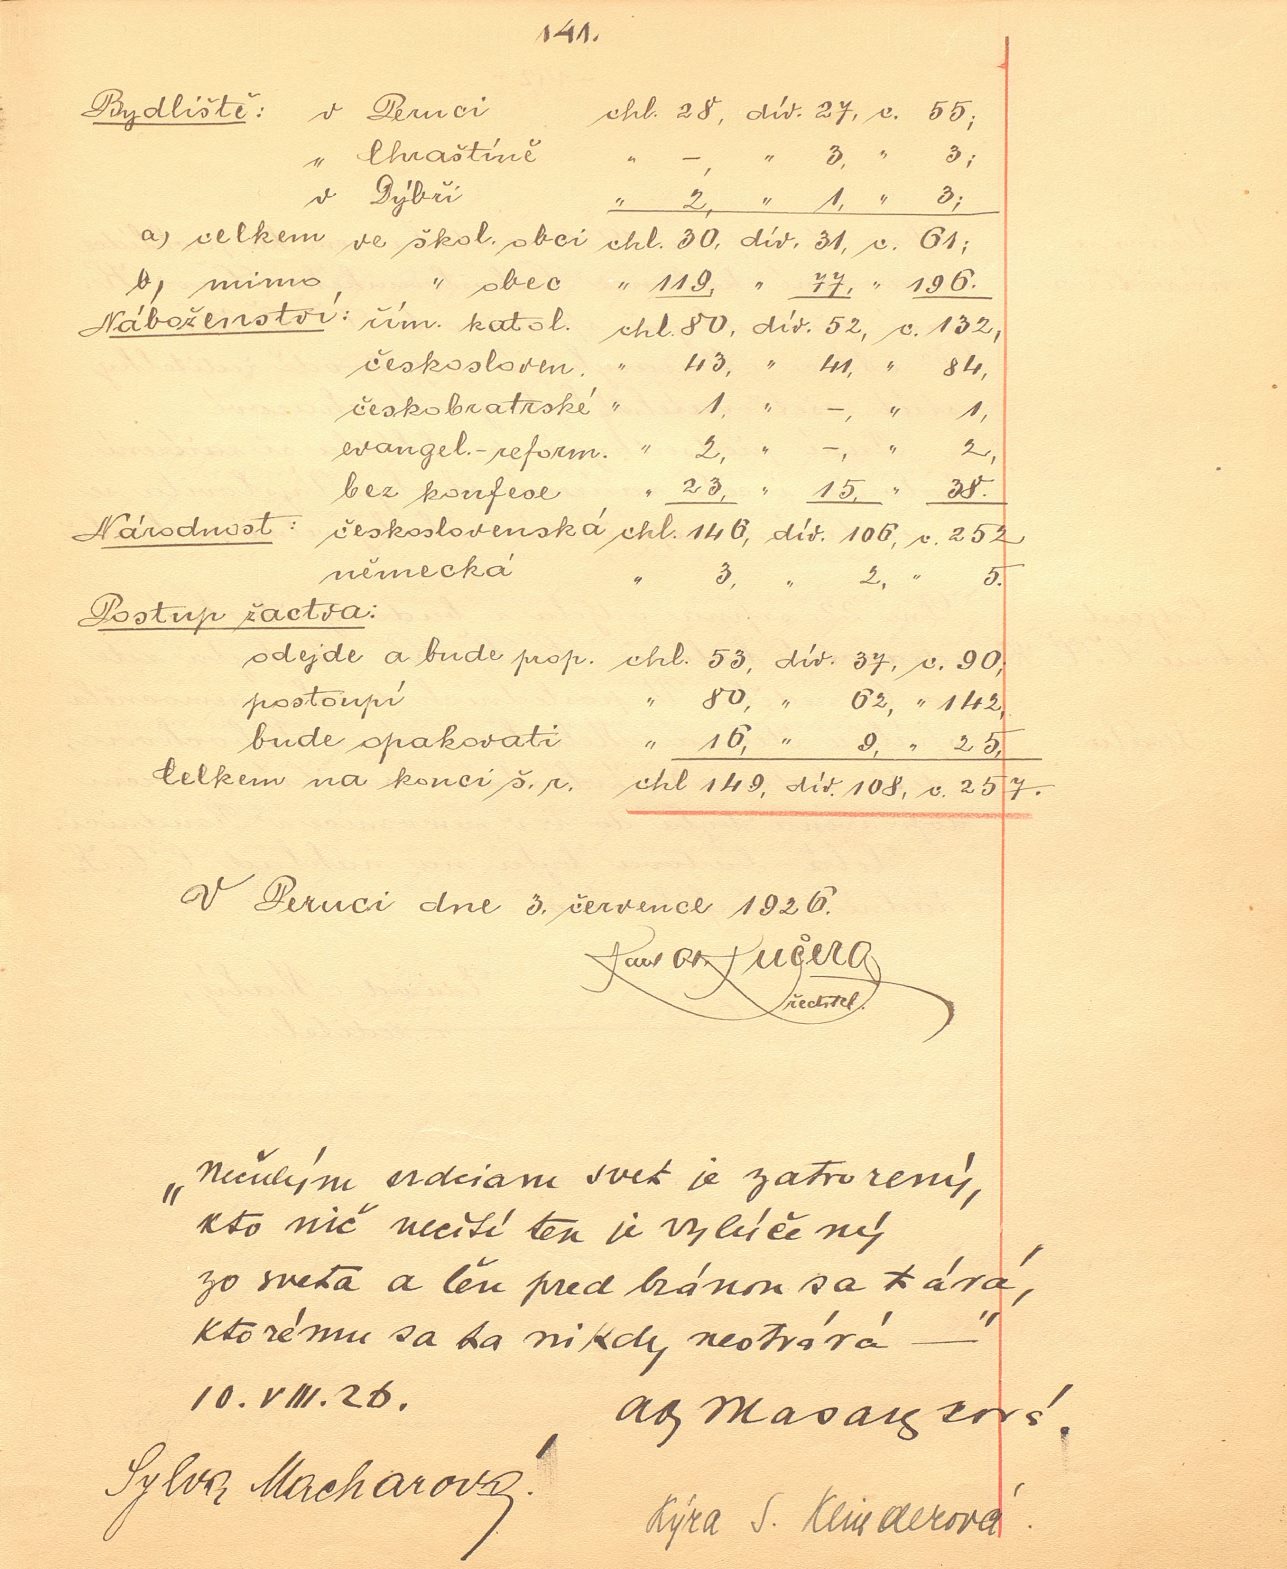 141.
Bydliště: v Peruci chl. 28, dív. 27, c. 55;
„ Chraštíně „ –, „ 3, „ 3;
v Dýbři „ 2, „ 1, „ 3;
a) celkem ve škol. obci chl. 30, dív. 31, c. 61;
b) mimo „ obec „ 119, „ 77, „ 196.
Náboženství: řím. katol. chl. 80, dív. 52, c. 132,
českosloven. „ 43, „ 41, „ 84,
českobratrské „ 1, „ –, „ 1,
evangel.-reform. „ 2, „ –, „ 2,
bez konfese „ 23, „ 15, „ 38.
Národnost: československá chl. 146, dív. 106, c. 252
německá „ 3, „ 2, „ 5.
Postup žactva:
odejde a bude prop. chl. 53, dív. 37, c. 90,
postoupí „ 80, „ 62, „ 142,
bude opakovati „ 16, „ 9, „ 25,
Celkem na konci š. r. chl 149, dív. 108, c. 257.
V Peruci dne 3. července 1926.
Kučera
ředitel.
„Nečulým srdciam svet je zatvorený,
kto nič necíti ten je vylúčený
zo sveta a len pred bránou sa tárá,
ktorému sa ta nikdy neotvárá —"
10. VIII. 26.
Masaryková.
Sylva Macharová.
Kýra S.